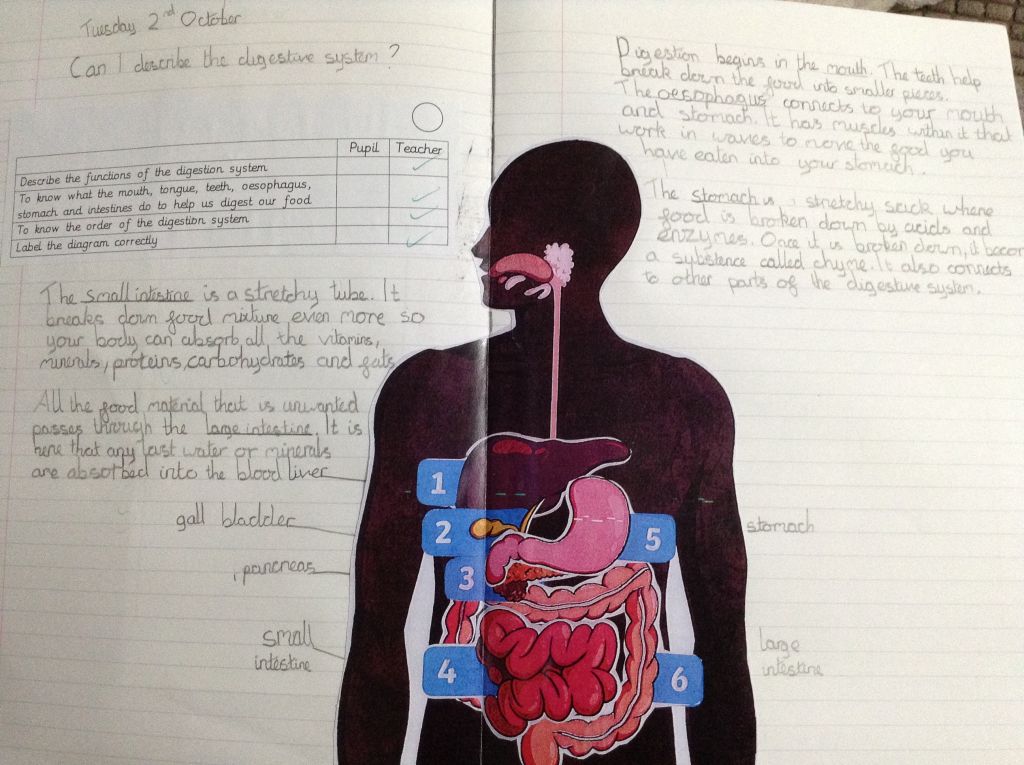 Tuesday 2nd October
Can I describe the digestive system?
Pupil Teacher
Describe the functions of the digestion system
To know what the mouth, tongue, teeth, oesophagus,
stomach and intestines do to help us digest our food
To know the order of the digestion system
Label the diagram correctly
The small intestine is a stretchy tube. It
breaks down food mixture even more so
your body can absorb all the vitamins,
minerals, proteins, carbohydrates and fats
All the food material that is unwanted
passes through the large intestine. It is
here that any last water or minerals
are absorbed into the blood
liver
gall bladder
pancreas
small
intestine
1
2
3
4
Digestion begins in the mouth. The teeth help
break down the food into smaller pieces.
The oesophagus connects to your mouth
and stomach. It has muscles within it that
work in waves to move the food you
have eaten into your stomach.
The stomach is a stretchy sack where
food is broken down by acids and
enzymes. Once it is broken down, it becom
a substance called chyme. It also connects
to other parts of the digestive system.
5
6
stomach
large
intestine